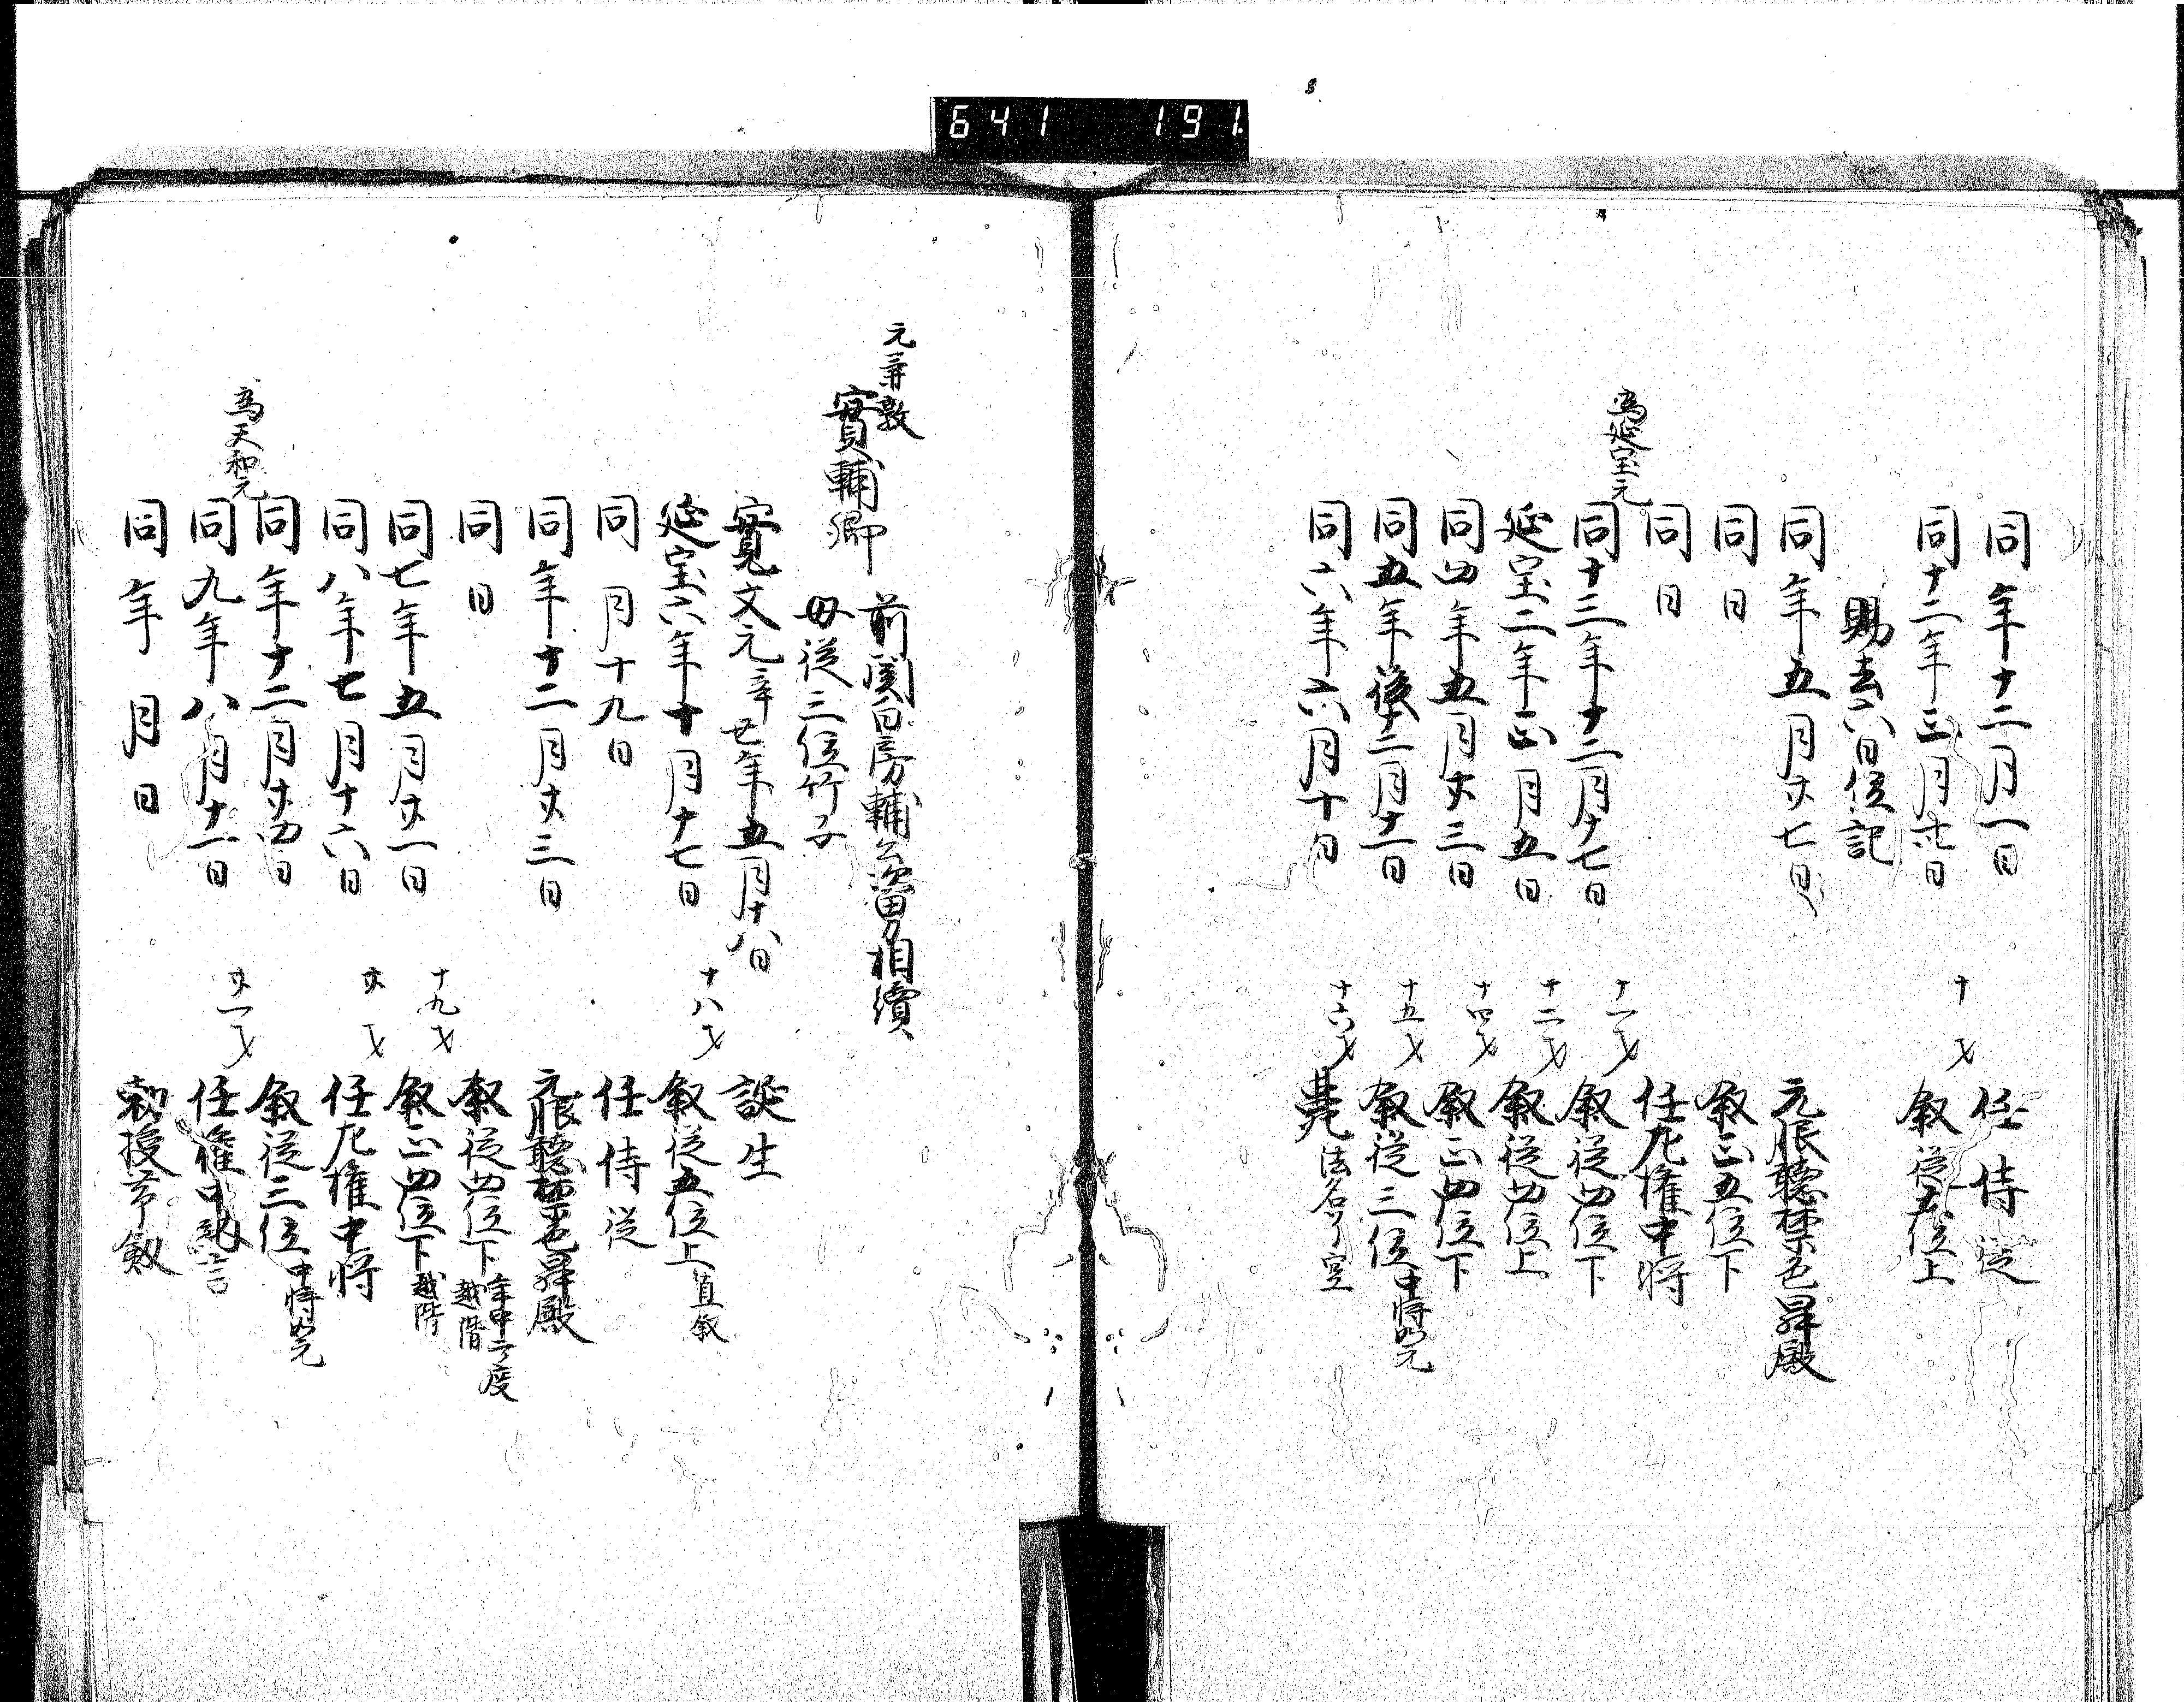 641 191
同年十二月一日 任侍従
同十二年三月廿六日 十才 叙従五位上
賜去六日位記
同年五月廿七日 元服聴禁色昇殿
同日 叙正五位下
同日 任左権中将
為延宝元
同十三年十二月十七日 十一才 叙従四位下
延宝二年正月五日 十二才 叙従四位上
同四年五月廿三日 十四才 叙正四位下
同五年後十二月十一日 十五才 叙従三位中将如元
同六年六月十日 十六才 薨法名了空
元兼敦
實輔卿 前関白房輔公次男相續
母従三位竹子
寛文元辛丑年五月十八日 誕生
延宝六年十月十七日 十八才 叙従五位上直叙
同月十九日 任侍従
同年十二月廿三日 元服聴禁色昇殿
同日 叙従四位下年中二度越階
同七年五月廿一日 十九才 叙正四位下越階
同八年七月十六日 廿才 任左権中将
同年十二月廿四日 叙従三位中将如元
為天和元
同九年八月十一日 廿一才 任権中納言
同年月日 勅授帯剱